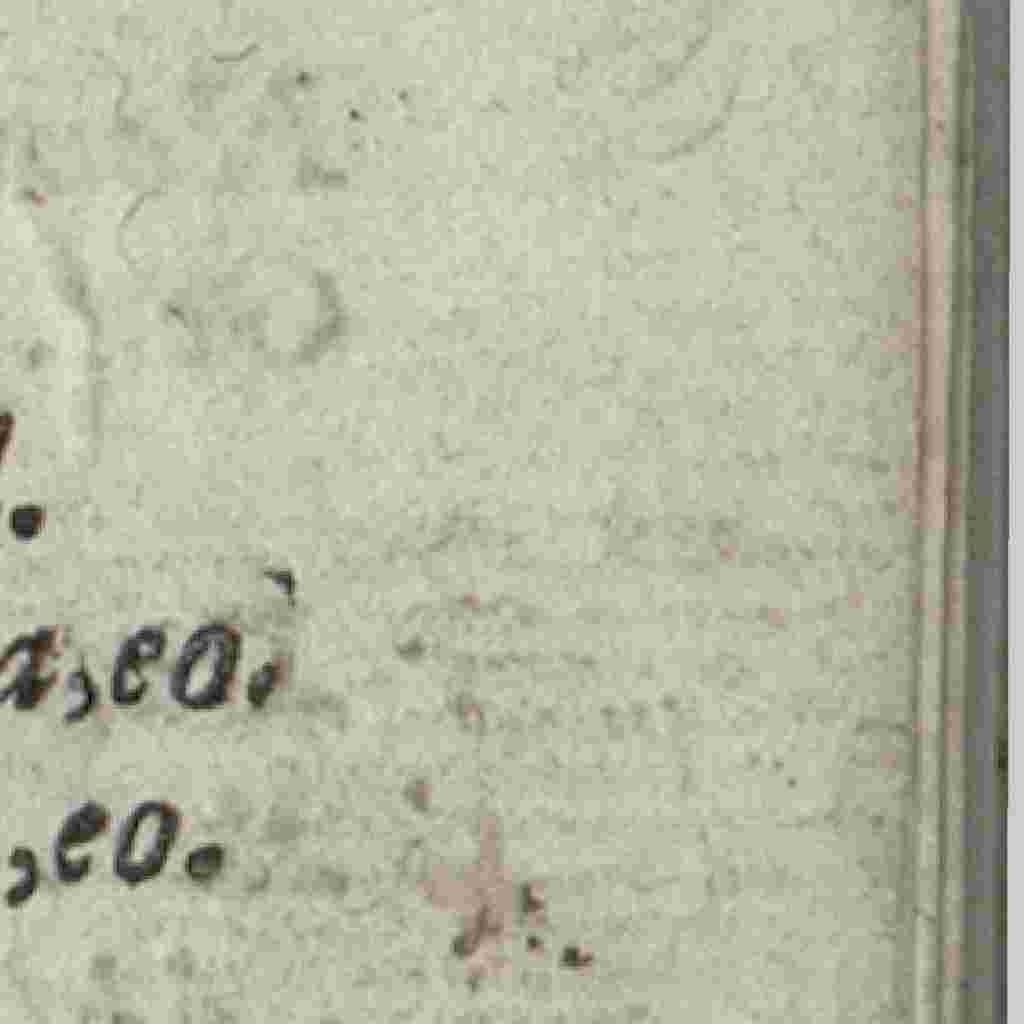 .
a,eo.
,eo.